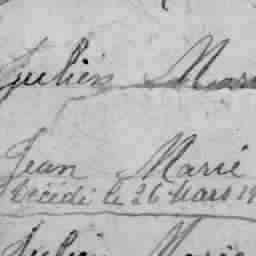 Julien Mari
Jean Marie
Décédé le 26 Mars 19
Julien Marie